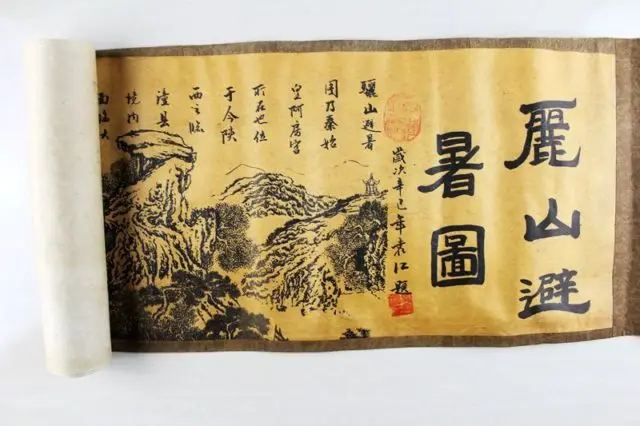 麗山避
暑圖
歲次辛巳年袁江题
驪山避暑
图乃秦始
皇阿房宫
所在也位
于今陕
西之临
潼县
境内
大